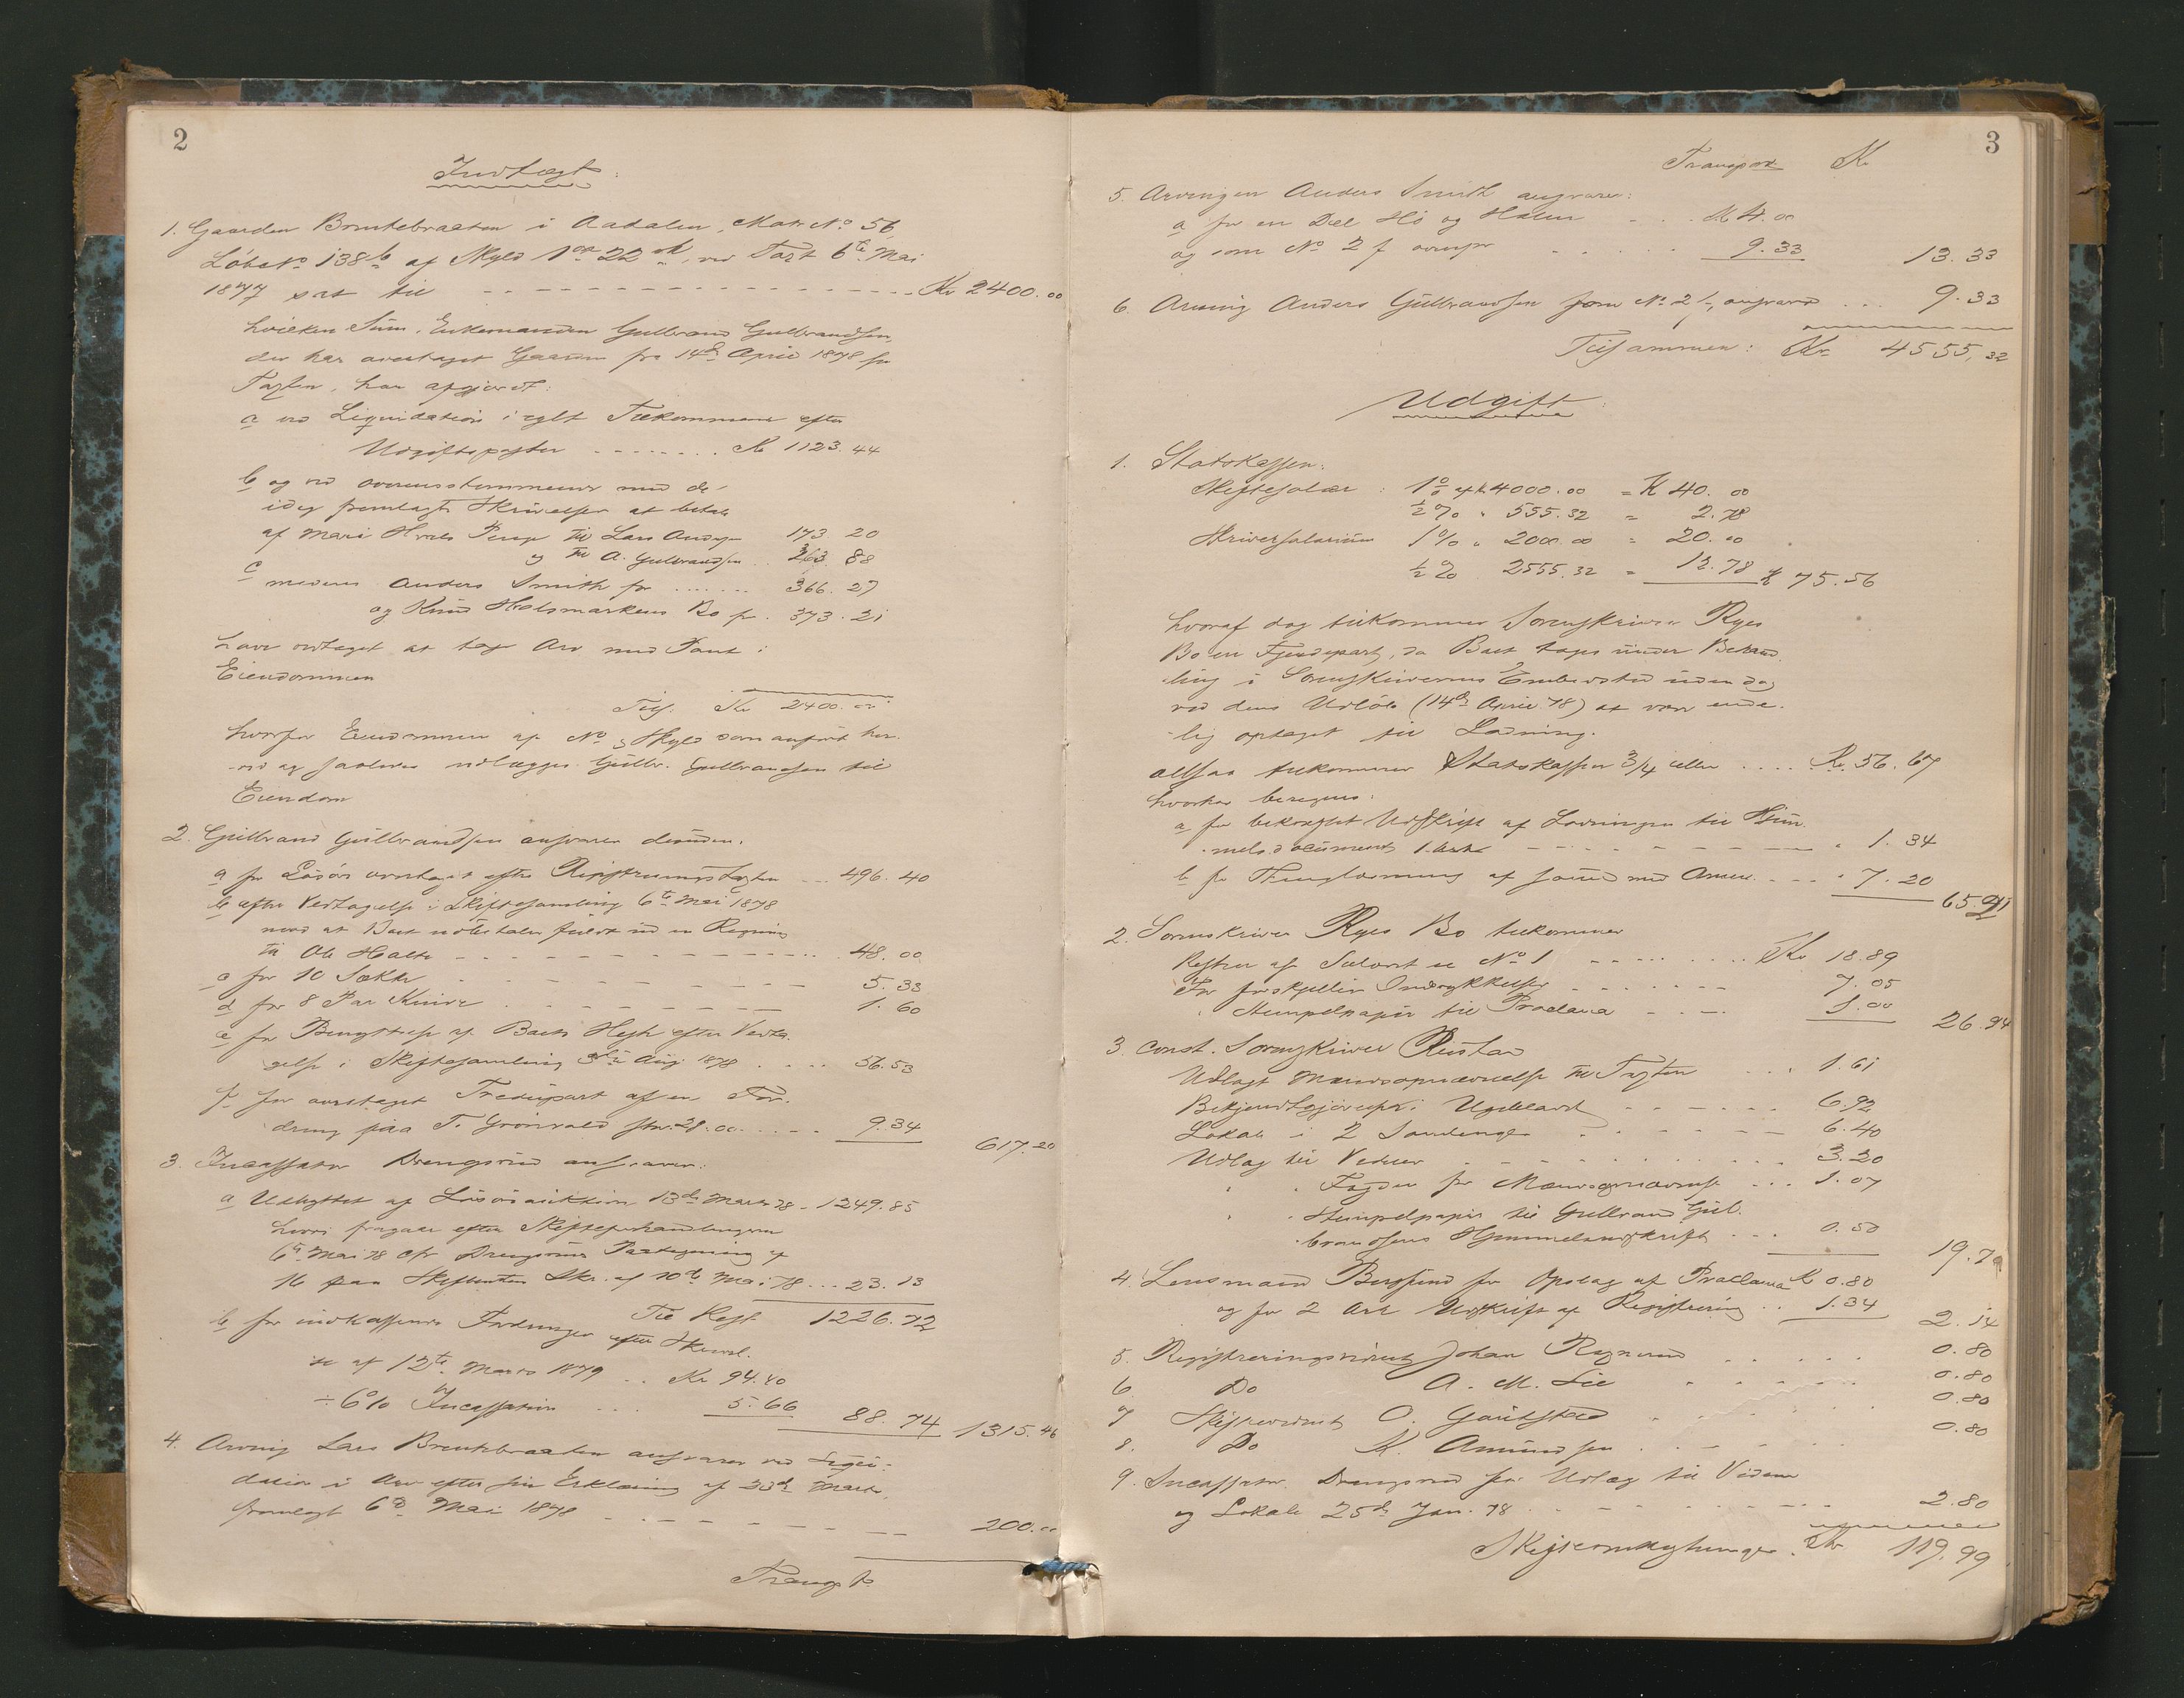 2
Indtægt:
1. Gaarden Brutebraaten i Aadalen, Matr No 56
Løbe No 138 b af Skyld 1 22, ved Taxt 6te Mai
1877 sat til - - - - Kr 2400.00
hvilken Sum, Enkemanden Gulbrand Gulbrandsen,
der har overtaget Gaarden fra 14de April 1878 for
Taxten, har afgjordt:
a ved Liquidation i egtet Tilkommende efter
Udgiftsposter . . . . . . . . Kr 1123.44
b og ved overensstemmende med de
idag fremlagte Skrivelser at betale
af Mari Til Lars 173 20
og Til A. Gulbrandsen . . 263 88
c medens Anders Smith for . . . . . . 366.27
og Knud Holsmarkens Bo for . 373.21
have vedtaget at tage Arv med Pant i
Eiendommen
Tils. Kr 2400.00
hvorfor Eiendommen af No & Skyld som anført her-
ved og saaledes udlægges Gulbr. Gulbrandsen til
Eiendom
2. Gulbrand Gulbrandsen ansvarer desuden:
a for Løsøre overtaget efter Registreringstaxten . . . 496.40
b efter Vedtagelse i Skiftesamling 6te Mai 1878
mod at Boet
til Ole - - - - - 48.00
c for 10 Sække - - - - - 5.33
d for 8 Par Knive - - - - - 1.60
e for af Boets Hest efter Vedta-
gelse i Skiftesamling 3die Aug 1878 . . . . 56.53
f for overtaget Trediepart af en For-
dring paa T. Grönvold stor 28.00 . . . . . 9.34
617.20
3. Incassator Drengsrud ansvarer:
a Udbyttet af Løsøreauktion 13de Marts 78 - 1249.85
hvori fragaar efter Skifteforhandlingerne
6te Mai 78 cfr Drengsruds Paategning af
16 paa Skr. af 10de Mai 78 . . . 23.13
Til Rest 1226.72
b for indkasserede Fordringer efter Skrivel-
se af 12te Marts 1879 . . Kr 94.40
÷ 6% Incassation . . . 5.66
88.74 1315.46
4. Arving Lars Brutebraaten ansvarer ved Liqui-
dation i Arv efter sin Erklæring af 23de Marts,
fremlagt 6te Mai 1878 - - - - 200.00
Transp. Kr
3
Transport Kr
5. Arvingen Anders Smith ansvarer:
a for en Del Hö og Halm . . . Kr 4.00
og som No 2 f ovenfor . . . . . 9.33
13.33
6. Arving Anders Gulbrandsen som No 2 f, ansvarer . . . 9.33
Tilsammen: Kr 4555,32
Udgift:
1. Statskassen:
Skiftesalær : 1% af Kr 4000.00 = Kr 40.00
½% " 555.32 = 2.78
Skriversalarium 1% " 2000.00 = 20.00
½% 2555.32 = 12.78 Kr 75.56
hvoraf dog tilkommer Sorenskriver Ryes
Bo en Fjerdepart, da Boet toges under Behand-
ling i Sorenskriverens Embedstid uden dog
ved dens Udløb (14de April 78) at være ende-
lig optaget til Lodning.
altsaa tilkommer Statskassen 3/4 eller . . . . Kr. 56.67
hvorhos beregnes:
a for bekræftet Udskrift af Lodningen til Hjem-
melsdocument 1 Ark - - - - - " 1.34
b for Thinglæsning af samme med . . . . " 7.20
65.21
2. Sorenskriver Ryes Bo tilkommer
Resten af Salæret se No 1 - - - . . . . Kr 18.89
For forskjellige Indrykkelser - - - - 7.05
" Stempelpapir til Proclama - - - 1.00
26.94
3. const. Sorenskriver Rustad
Udlagt Mændsopnævnelse til Taxten . . . . 1.61
Bekjendtgjørelse i Ugeblad - - - - 6.92
Lokale i 2 Samlinger . - - - - - 6.40
Udlæg til Vidner - - - - - 3.20
" " Fogden for Mændsopnævnelse . . . 1.07
" " Stempelpapir til Gulbrand Gul-
brandsens Hjemmelsudskrift . . . 0.50
19.70
4. Lensmand for Opslag af Proclama Kr 0.80
og for 2 Ark Udskrift af Registrering . . 1.34
2.14
5. Registreringsvidnet Johan . . . . . 0.80
6. Do A. M. Lie . . . . . 0.80
7 Skiftevidnet O. . . . . 0.80
8. Do K. Amundsen . . . . . 0.80
9. Incassator Drengsrud for Udlæg til Vidner
og Lokale 25de Jan. 78 . - - - - - 2.80
Skifteomkostninger. Kr 119.99